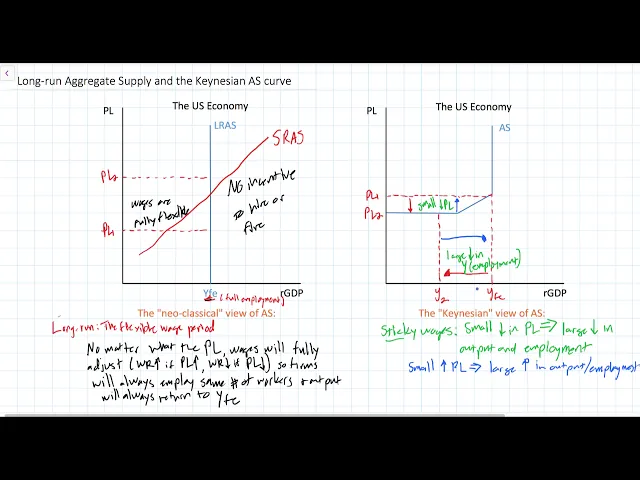 Long-run Aggregate Supply and the Keynesian AS curve
The US Economy
PL
LRAS
SRAS
PL2
PL1
wages are
fully flexible
No incentive
to hire or
fire
Yfe
(full employment)
rGDP
The "neo-classical" view of AS:
Long-run: The flexible wage period
No matter what the PL, wages will fully
adjust (WR↑ if PL↑, WR↓ if PL↓) so firms
will always employ same # of workers + output
will always return to Yfe
The US Economy
PL
AS
PL1
PL2
small ↓PL
large ↓ in
Y (employment)
Y2
Yfe
rGDP
The "Keynesian" view of AS:
Sticky wages: Small ↓ in PL ⇒ large ↓ in
output and employment
Small ↑ PL ⇒ large ↑ in output/employment